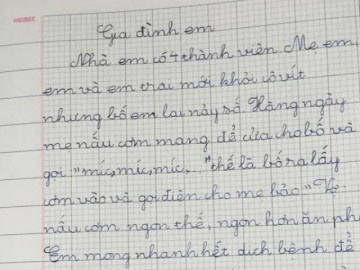 Gia đình em
Nhà em có 4 thành viên. Mẹ em,
em và em trai mới khỏi cô vít
nhưng bố em lại nảy số. Hằng ngày
mẹ nấu cơm mang để cửa cho bố và
gọi "míc, míc, míc,..." thế là bố ra lấy
cơm vào và gọi điện cho mẹ bảo "Vợ
nấu cơm ngon thế, ngon hơn ăn ph
Em mong nhanh hết dịch bệnh để